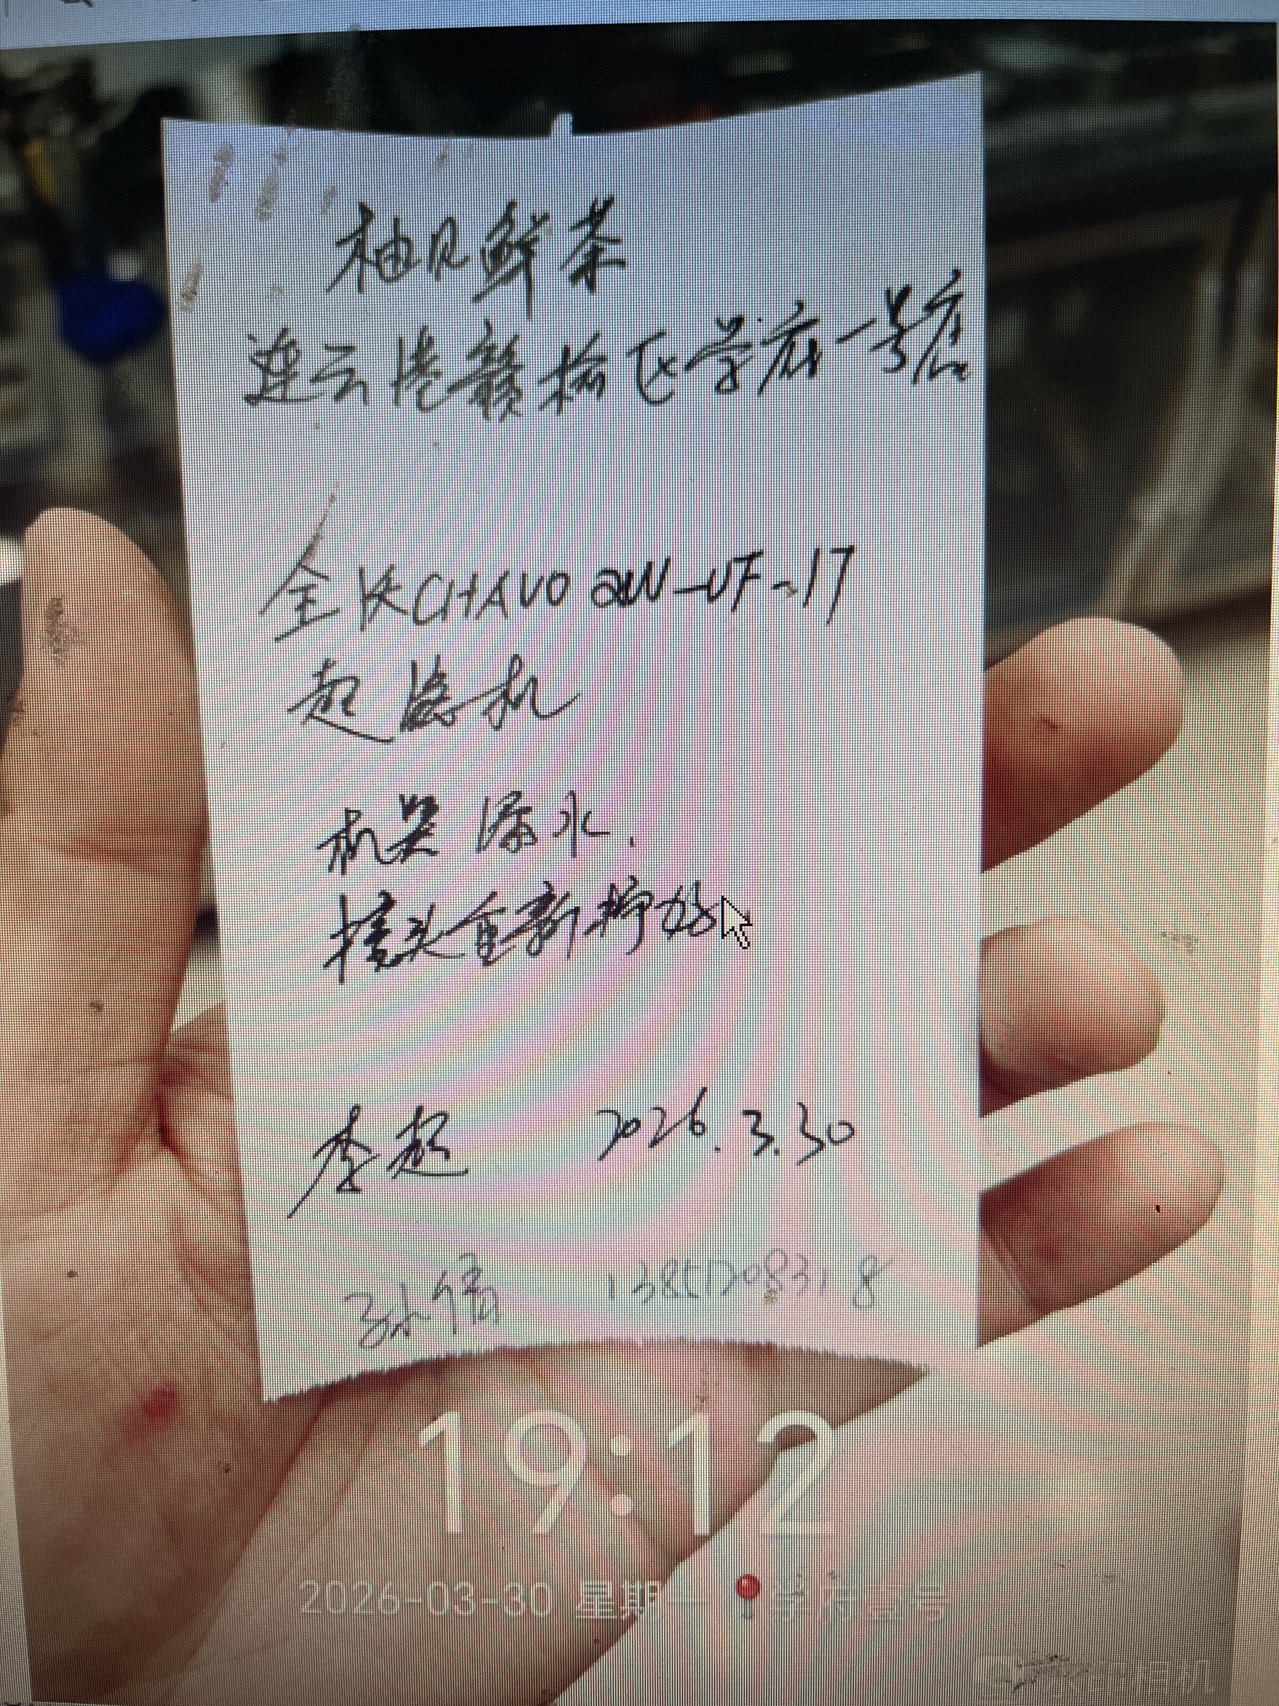 柚见鲜茶
连云港赣榆区学府一号店
全伙CHAVO QW-UF-17
超滤机
机器漏水.
接头重新拧好
李超 2026.3.30
孙倩 13851208318
19:12
2026-03-30 星期一 学府壹号
水印相机